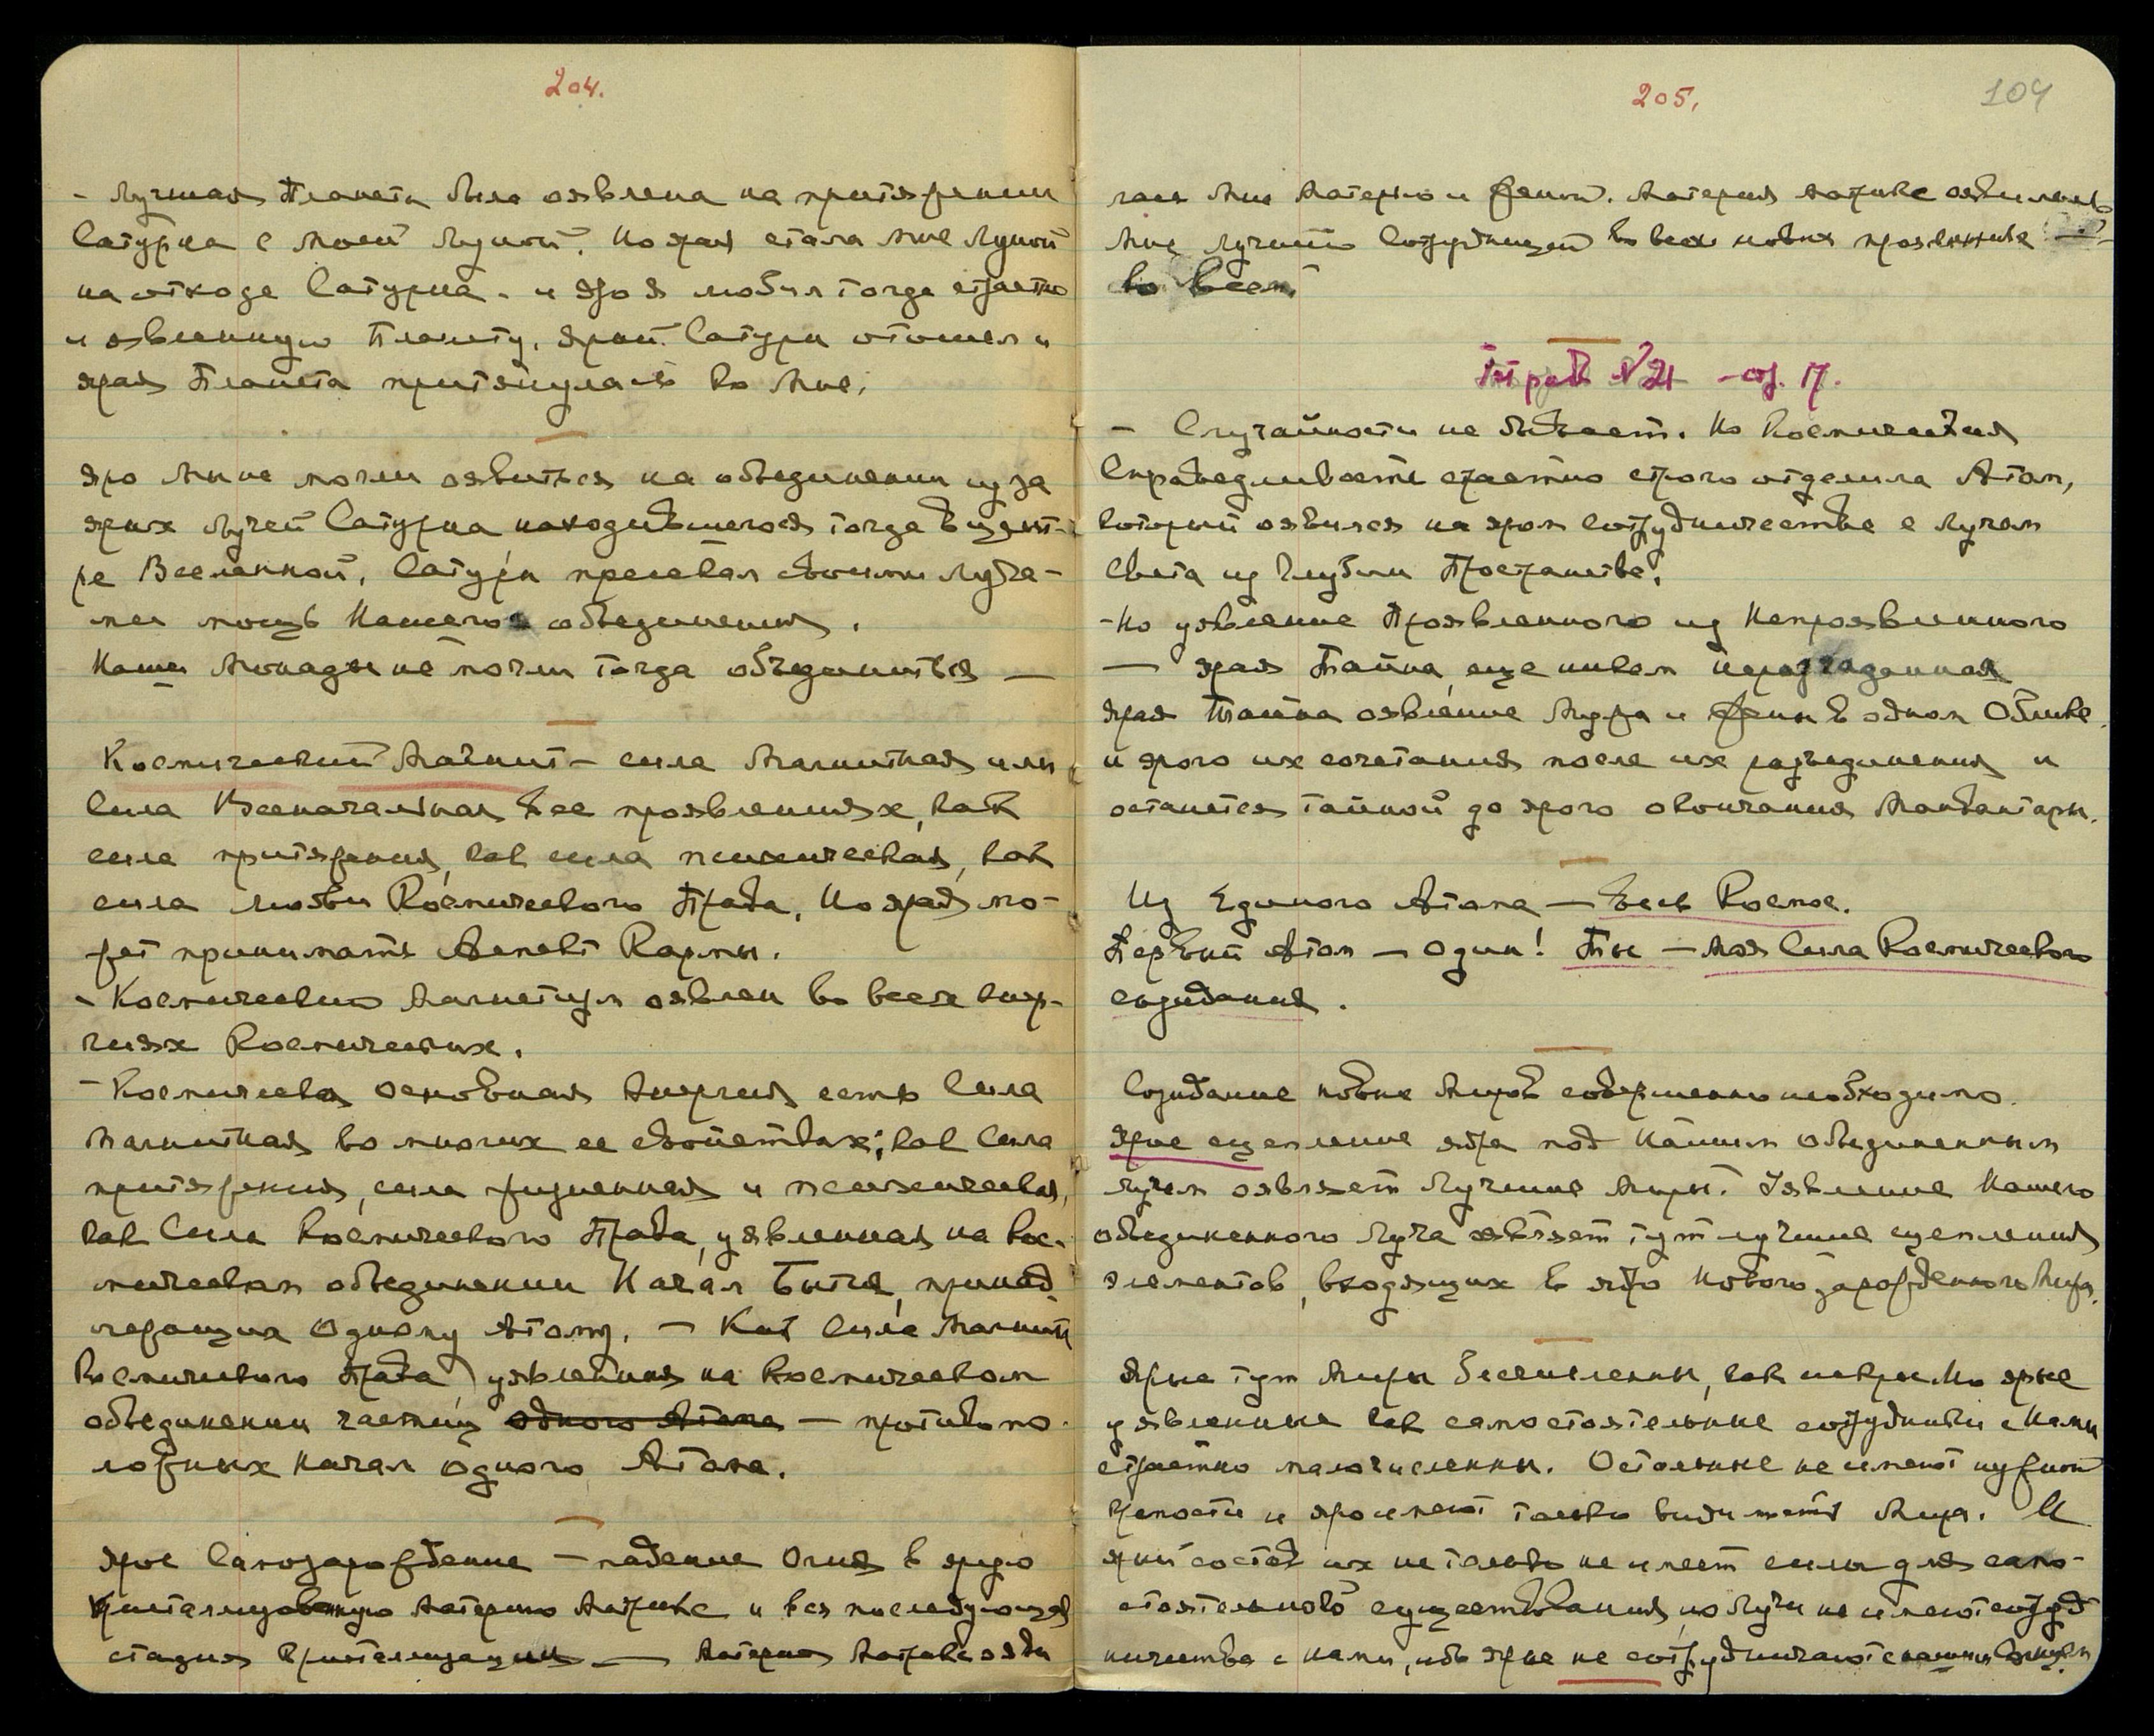 204.
- Лучшая Планета была оявлена на притяжении
Сатурна с моей Луной. Но ярая стала мне Луной
на отходе Сатурна - и яро я любил тогда страстно
и оявленную Планету. Ярый Сатурн отошел и
ярая Планета притянулась ко Мне.
Яро Мы не могли оявиться на объединении из за
ярых Лучей Сатурна находившегося тогда в цент-
ре Вселенной. Сатурн пресекал своими Луча-
ми мощь Нашего объединения.
Наши Монады не могли тогда объединиться —
Космический Магнит - сила Магнитная или
Сила Всеначальная в ее проявлениях, как
сила притяжения, как сила психическая, как
сила Любви Космического Права. Но ярая мо-
жет принимать Аспект Кармы.
- Космический Магнетизм оявлен во всех энер-
гиях Космических.
- Космическая основная Энергия есть Сила
Магнитная во многих ее свойствах; как Сила
притяжения, сила жизненная и психическая,
как Сила Космического Права, уявленная на Кос-
мическом объединении Начал Бытия, принад-
лежащих Одному Атому. - Как Сила Магнита
Космического Права, уявленная на Космическом
объединении частиц одного Атома — противопо-
ложных Начал Одного Атома.
Ярое Самозарождение — падение Огня в ярую
Кристаллизованную Материю Матрикс и вся последующая
стадия Кристаллизации — Материя Матрикс яви
205.
104
лась Мне Матерью и Женой. Материя Матрикс оявилась
Мне Лучшей Сотрудницей во всех новых проявлениях —
во всем.
Тетрадь №21 - стр. 17.
- Случайности не бывает. Но Космическая
Справедливость страстно строго отделила Атом,
который оявился на яром сотрудничестве с Лучом
Света из Глубин Пространства.
- Но уявление Проявленного из Непроявленного
— ярая Тайна, еще никем неразгаданная
Ярая Тайна оявление Мужа и Жены в одном Облике
и ярого их сочетания после их разъединения и
останется тайной до ярого окончания Манвантары.
Из Единого Атома — весь Космос.
Первый Атом — Один! Ты — Моя Сила Космического
созидания.
Созидание новых Миров совершенно необходимо.
Ярое сцепление ядра под Нашим объединенным
Лучом оявляет Лучшие Миры. Уявление Нашего
объединенного Луча оявляет тут лучшие сцепления
элементов, входящих в ядро Нового зарожденного Мира.
Ярые тут Миры бесчисленны, как искры. Но ярые
уявленные как самостоятельные сотрудники с Нами
страстно малочисленны. Остальные не имеют нужной
Ценности и яро имеют только видимость Мира. И
ярый состав их не только не имеет силы для само-
стоятельного существования, но Лучи не имеют сотруд
ничества с нами, ибо ярые не сотрудничают с нашим